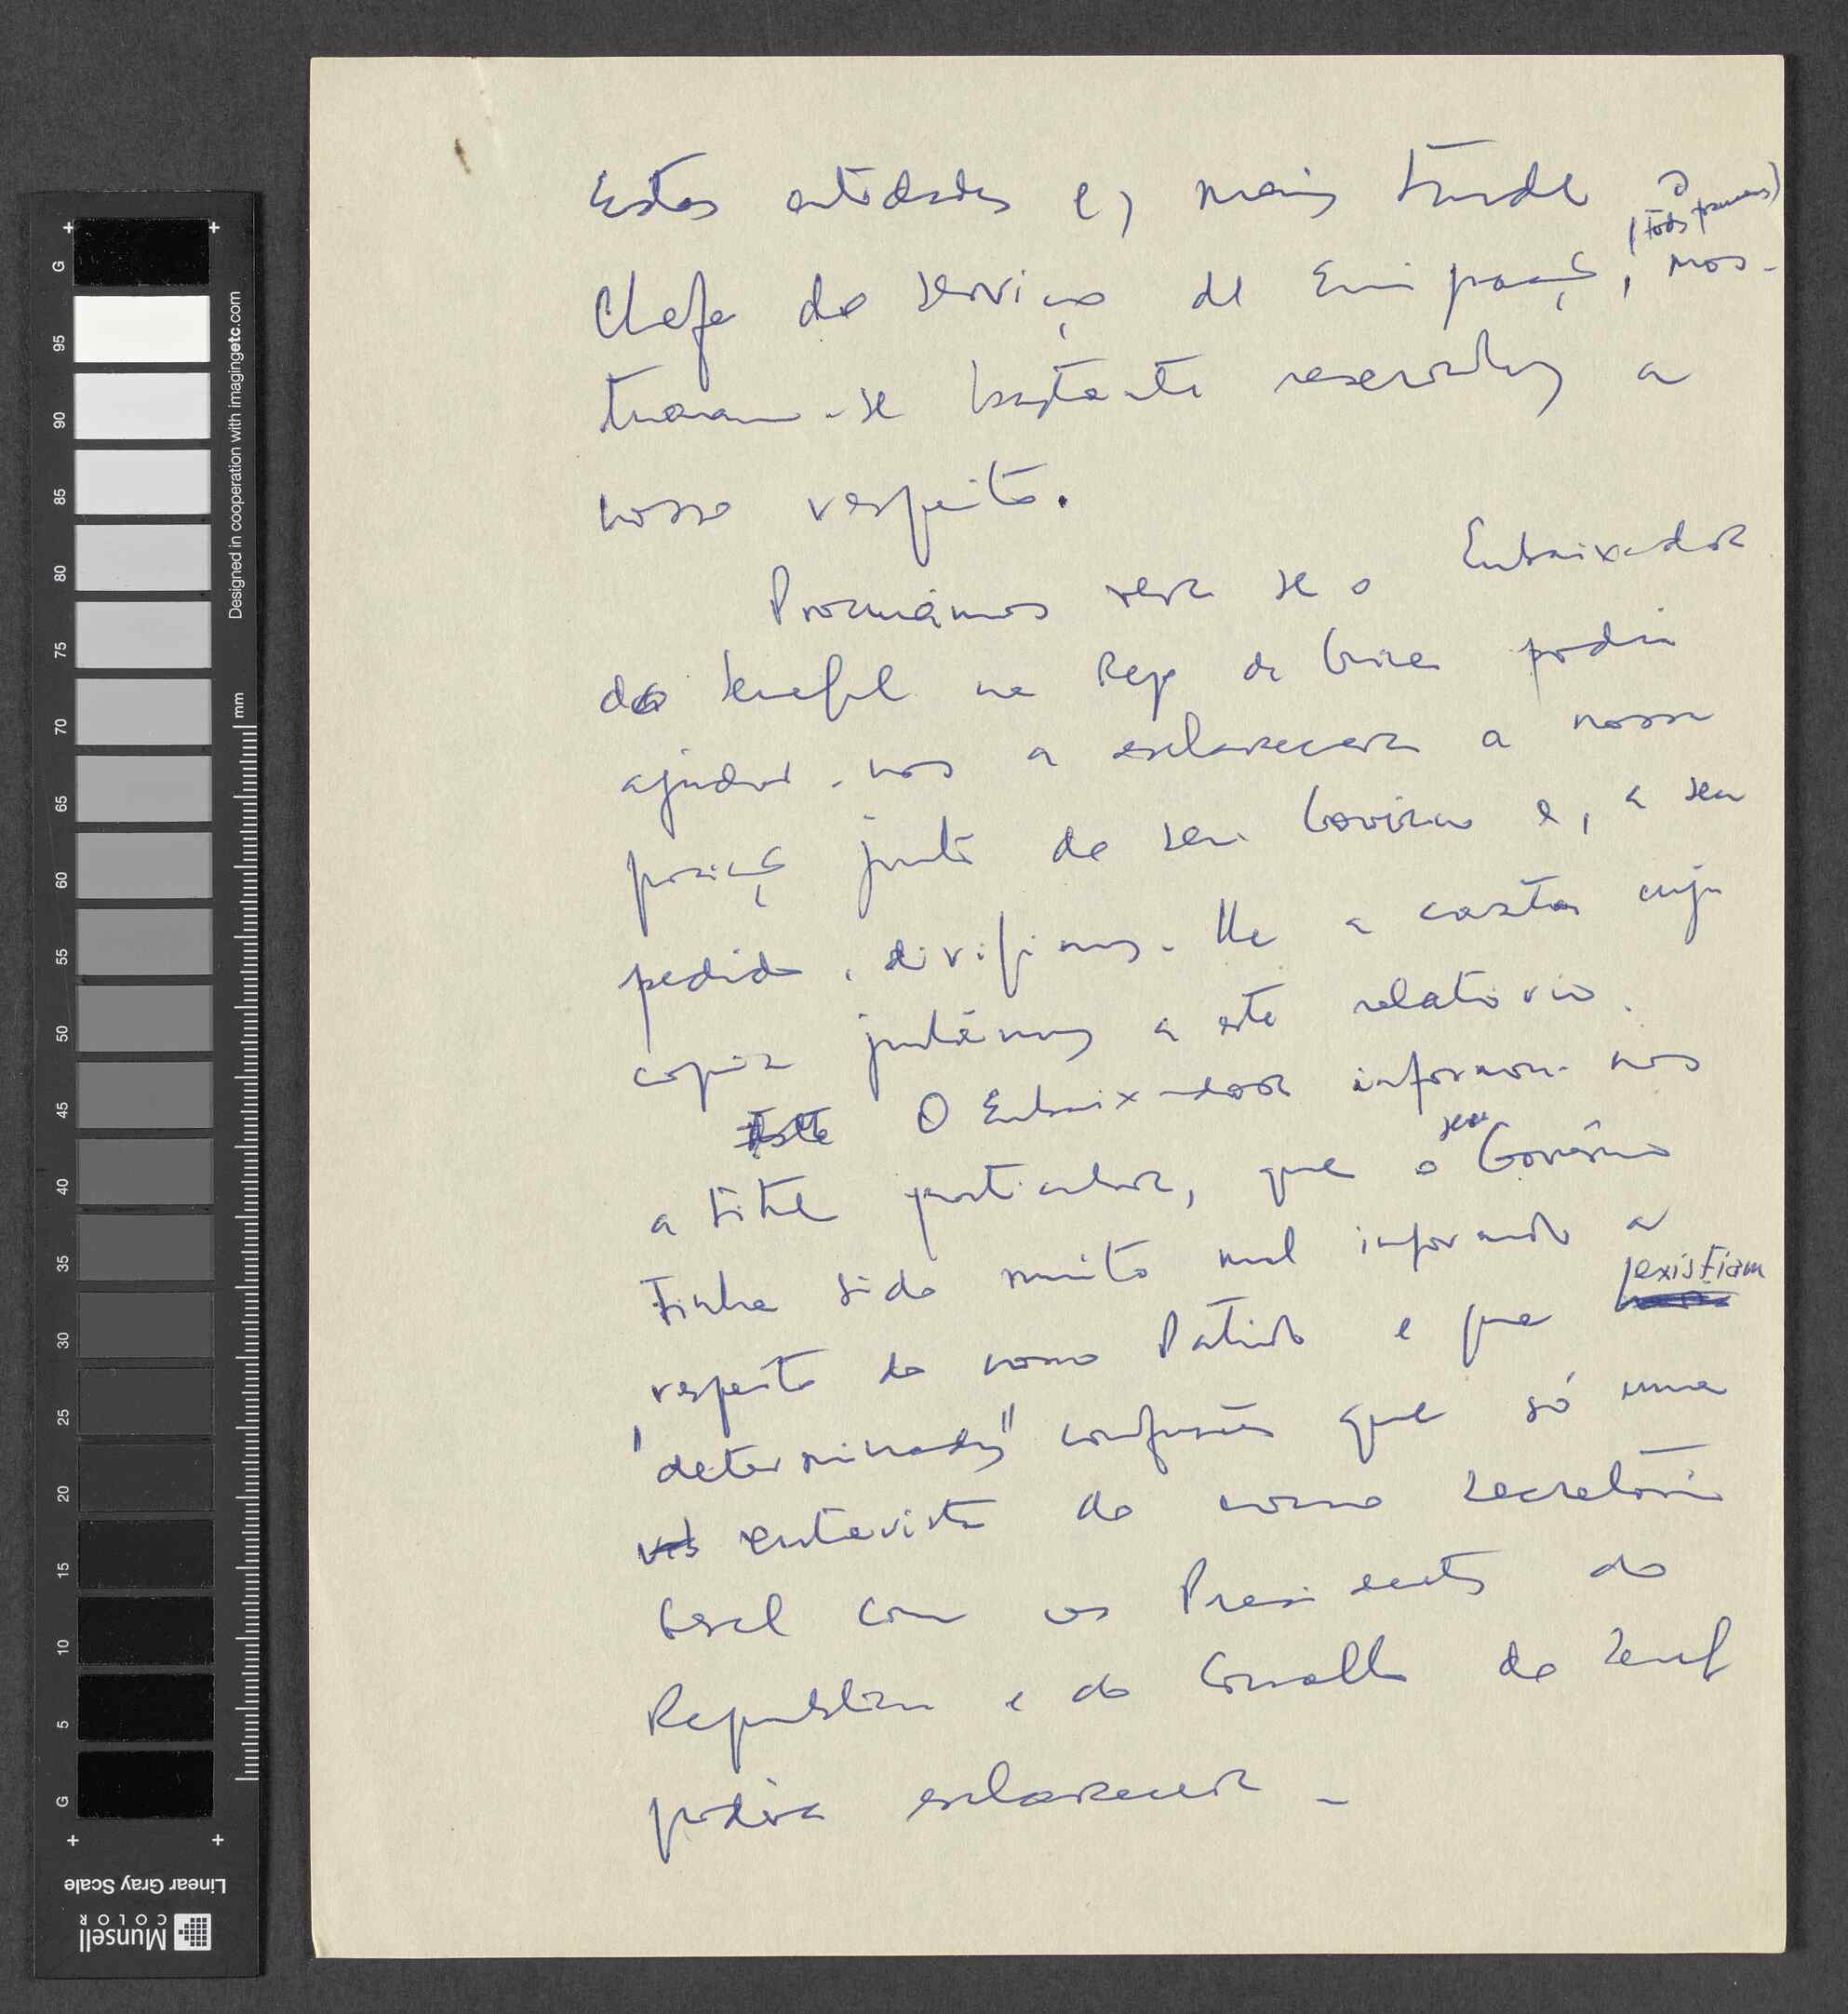 Estas entidades e, mais tarde o
Chefe do serviço de Emigraç, (todos franceses) mos-
traram-se bastante reservadas a
nosso respeito.
Procurámos ver se o Embaixador
do Senegal na Rep da Guiné podia
ajudar-nos a esclarecer a nossa
posiç junto do seu Governo e, a seu
pedido, dirigimos-lhe a carta cuja
copia juntámos a este relatório.
Este O Embaixador informou-nos
a titre particular, que o seu Governo
tinha sido muito mal informado a
respeito do nosso Partido e que existiam
"determinadas" confusões que só uma
entrevista do nosso secretário
Geral com os Presidents da
Republica e do Conselho do Seneg
podera esclarecer -
Designed in cooperation with imagingetc.com
mm
G
95
90
85
80
75
70
65
60
55
50
45
40
35
30
25
20
15
10
5
G
Linear Gray Scale
Munsell
COLOR